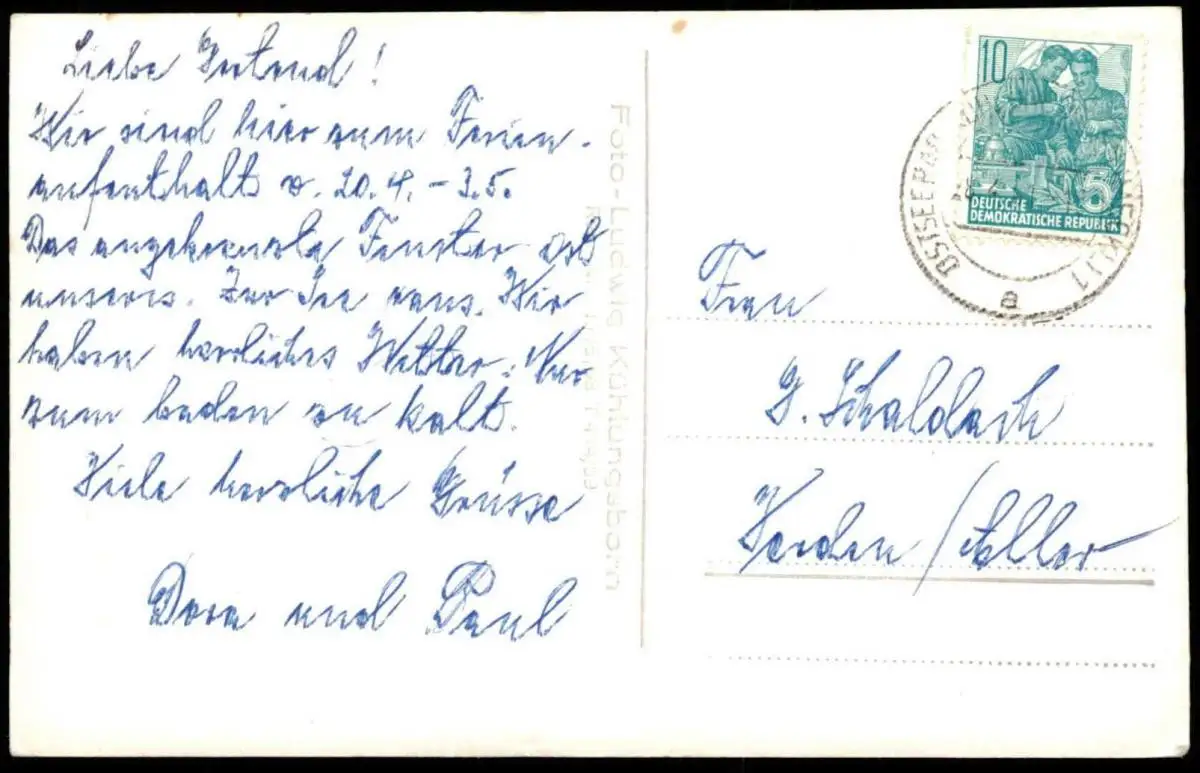 Liebe Gertrud!
Wir sind hier zum Ferien-
aufenthalt v. 20.4. - 3.5.
Das angekreuzte Fenster ist
unseres. Zur See raus. Wir
haben herrliches Wetter. Nur
zum baden zu kalt.
Viele herzliche Grüsse
Dora und Paul
Foto-Ludwig Kühlungsborn
10
5
DEUTSCHE
DEMOKRATISCHE REPUBLIK
OSTSEEBAD
a
Frau
G. Schaldach
Verden / Aller